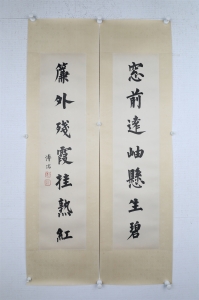 窓前遠岫懸生碧
簾外殘霞挂熟紅
溥儒